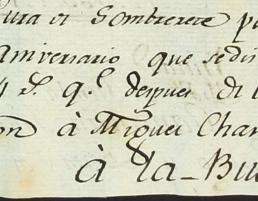 ura de Sombrerere p
aniversario que sedi
S. q.e despues de l
on à Miguel Chan
à la Bu